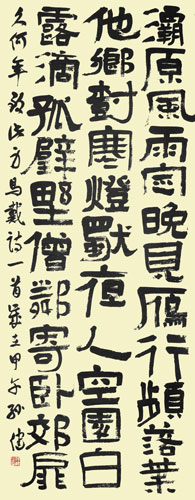 灞原風雨定晚見鴈行頻落葉
他鄉樹寒燈獨夜人空園白
露滴孤壁野僧鄰寄卧郊扉
久何年致此身馬戴詩一首歲在甲午孫